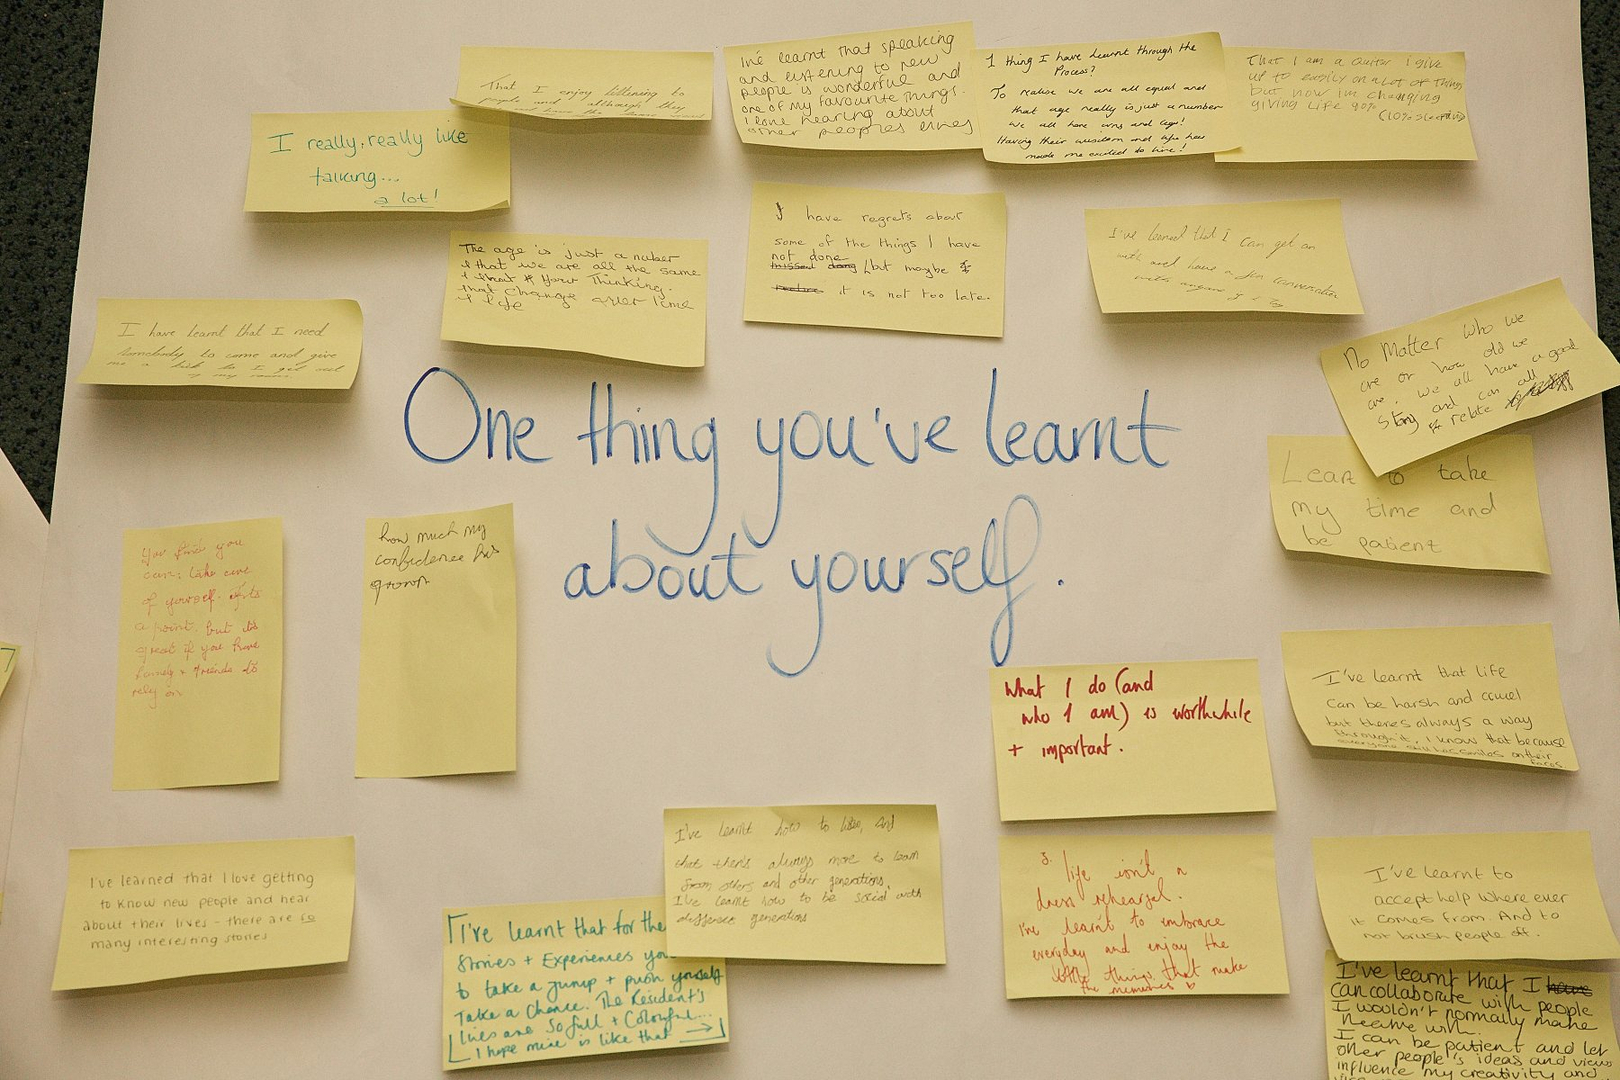 That I enjoy listening to
people and although they
I've learnt that speaking
and listening to new
people is wonderful and
one of my favourite things.
I love hearing about
other peoples lives
1 thing I have learnt through the
Process?
To realise we are all equal and
that age really is just a number
we all have arms and legs!
Having their wisdom and life has
made me excited to live!
That I am a quitter I give
up to easily on a lot of things
but now im changing
giving life 90%
I really, really like
talking...
a lot!
The age is just a nuber
& that we are all the same
Thinking.
that change over time
& life
I have regrets about
some of the things I have
not done
missed but maybe
it is not too late.
I've learned that I can get on
with and have a fun conversation
with anyone
I have learnt that I need
Somebody to come and give
me a kick to I get out
of my room.
No Matter who we
are or how old we
are, we all have a good
story and can all
relate
One thing you've learnt
about yourself.
Lear to take
my time and
be patient
You find you
can: take care
of yourself.
a point, but it's
great if you have
family + friends to
rely on
how much my
confidence has
grown
What I do (and
who I am) is worthwhile
+ important.
I've learnt that life
can be harsh and cruel
but theres always a way
through it, I know that because
everyone still has smiles on their
faces.
I've learned that I love getting
to know new people and hear
about their lives - there are so
many interesting stories
I've learnt how to listen, and
that there's always more to learn
from others and other generations.
I've learnt how to be social with
different generations
I've learnt that for the
Stories + Experiences you
to take a jump + push yourself
Take a Chance. The Resident's
lives are so full + Colourful...
I hope mine is like that
life isn't a
dress rehearsal.
i've learnt to embrace
everyday and enjoy the
little things that make
the memories
I've learnt to
accept help where ever
it comes from. And to
not brush people off.
I've learnt that I have
can collaborate with people
I wouldn't normally make
I can be patient and let
other people's ideas and views
influence my creativity and